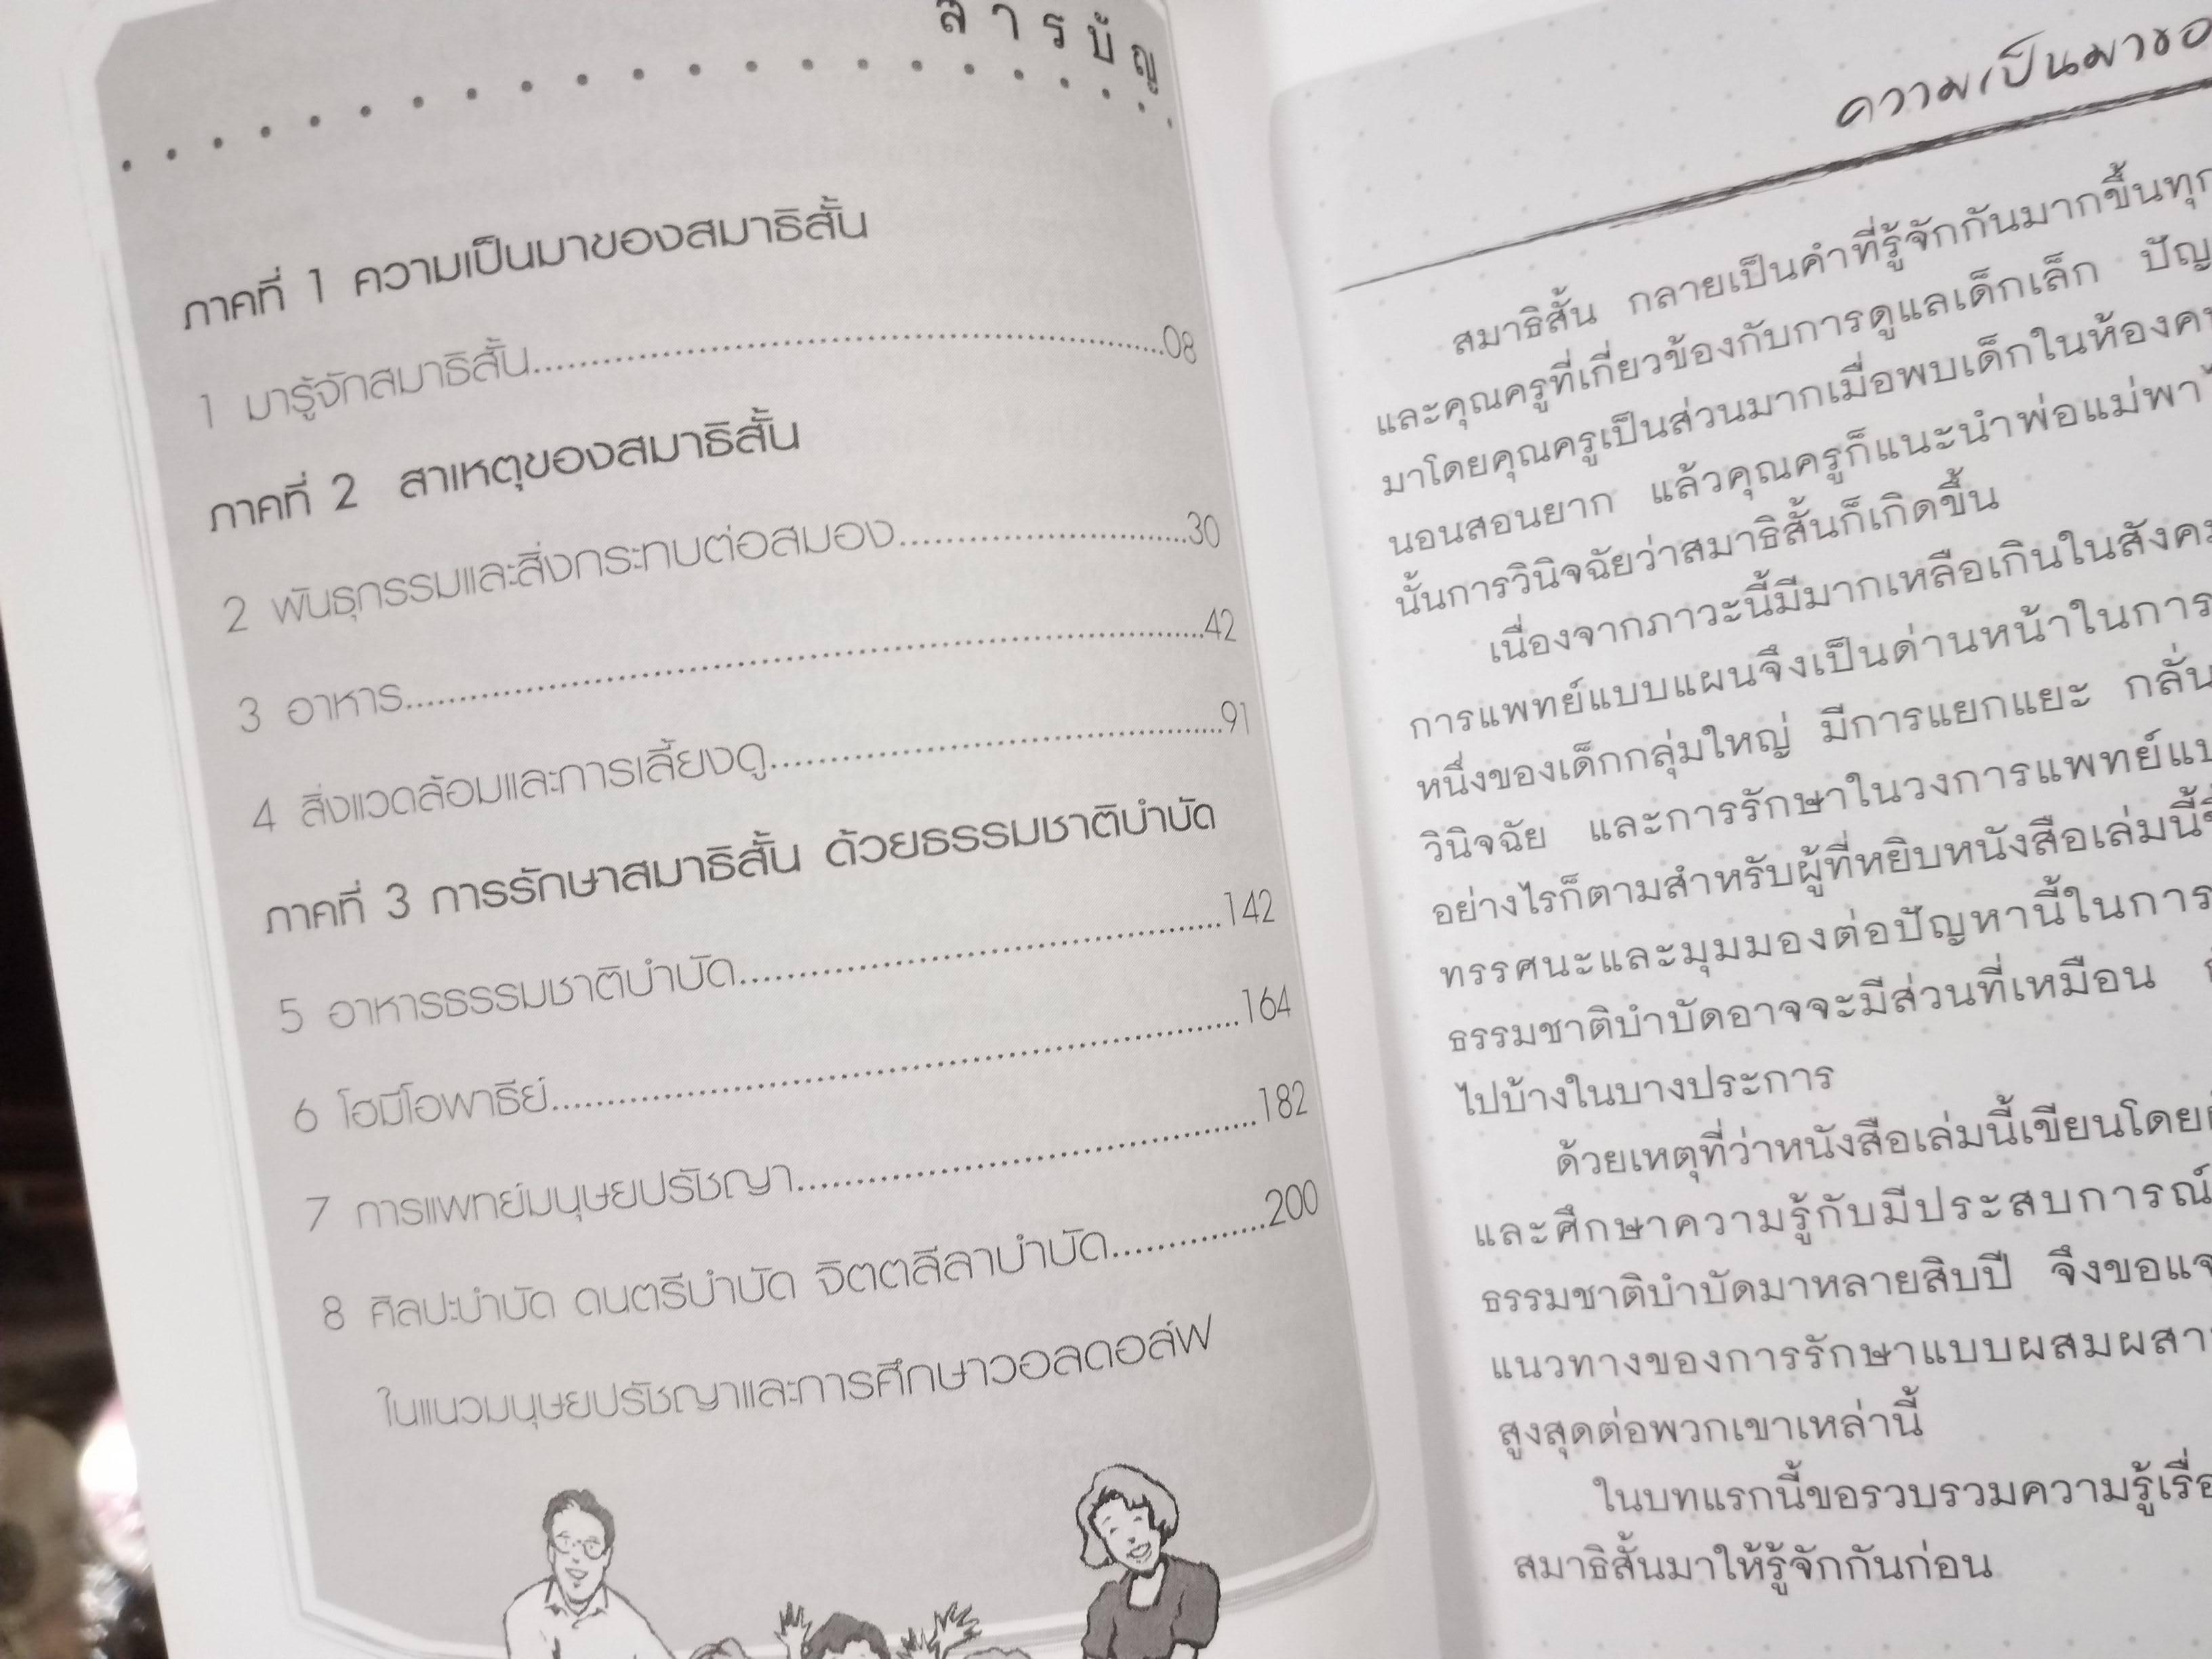 สารบัญ
ภาคที่ 1 ความเป็นมาของสมาธิสั้น
1 มารู้จักสมาธิสั้น..........08
ภาคที่ 2 สาเหตุของสมาธิสั้น
2 พันธุกรรมและสิ่งกระทบต่อสมอง..........30
3 อาหาร..........42
4 สิ่งแวดล้อมและการเลี้ยงดู..........91
ภาคที่ 3 การรักษาสมาธิสั้น ด้วยธรรมชาติบำบัด
5 อาหารธรรมชาติบำบัด..........142
6 โฮมีโอพาธีย์..........164
7 การแพทย์มนุษยปรัชญา..........182
8 ศิลปะบำบัด ดนตรีบำบัด จิตตลีลาบำบัด..........200
ในแนวมนุษยปรัชญาและการศึกษาวอลดอล์ฟ
ความเป็นมาขอ
สมาธิสั้น กลายเป็นคำที่รู้จักกันมากขึ้นทุก
และคุณครูที่เกี่ยวข้องกับการดูแลเด็กเล็ก ปัญ
มาโดยคุณครูเป็นส่วนมากเมื่อพบเด็กในห้อง
นอนสอนยาก แล้วคุณครูก็แนะนำพ่อแม่พา
นั้นการวินิจฉัยว่าสมาธิสั้นก็เกิดขึ้น
เนื่องจากภาวะนี้มีมากเหลือเกินในสังคม
การแพทย์แบบแผนจึงเป็นด่านหน้าในการ
หนึ่งของเด็กกลุ่มใหญ่ มีการแยกแยะ กลั่น
วินิจฉัย และการรักษาในวงการแพทย์แบ
อย่างไรก็ตามสำหรับผู้ที่หยิบหนังสือเล่มนี้
ทรรศนะและมุมมองต่อปัญหานี้ในการ
ธรรมชาติบำบัดอาจจะมีส่วนที่เหมือน
ไปบ้างในบางประการ
ด้วยเหตุที่ว่าหนังสือเล่มนี้เขียนโดย
และศึกษาความรู้กับมีประสบการณ์
ธรรมชาติบำบัดมาหลายสิบปี จึงขอแจ
แนวทางของการรักษาแบบผสมผสา
สูงสุดต่อพวกเขาเหล่านี้
ในบทแรกนี้ขอรวบรวมความรู้เรื่อ
สมาธิสั้นมาให้รู้จักกันก่อน